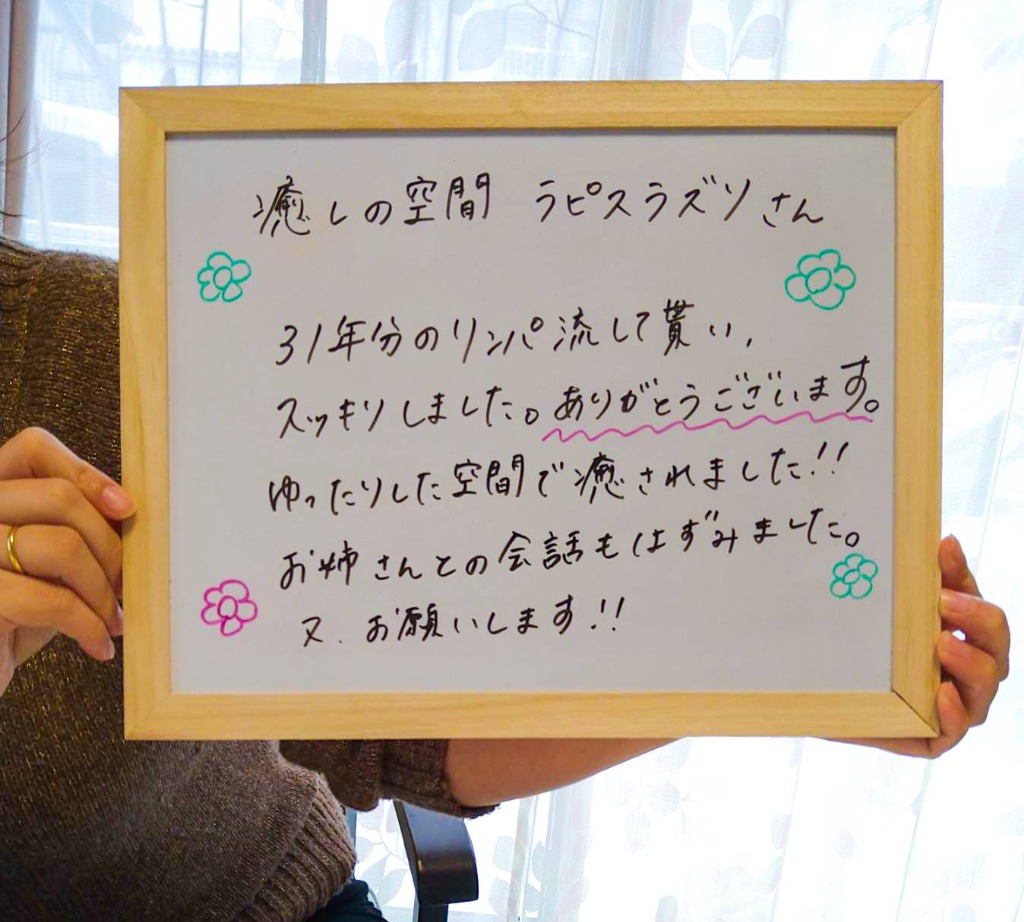 癒しの空間 ラピスラズリさん
31年分のリンパ流して貰い、
スッキリしました。ありがとうございます。
ゆったりした空間で癒されました!!
お姉さんとの会話もはずみました。
又、お願いします!!